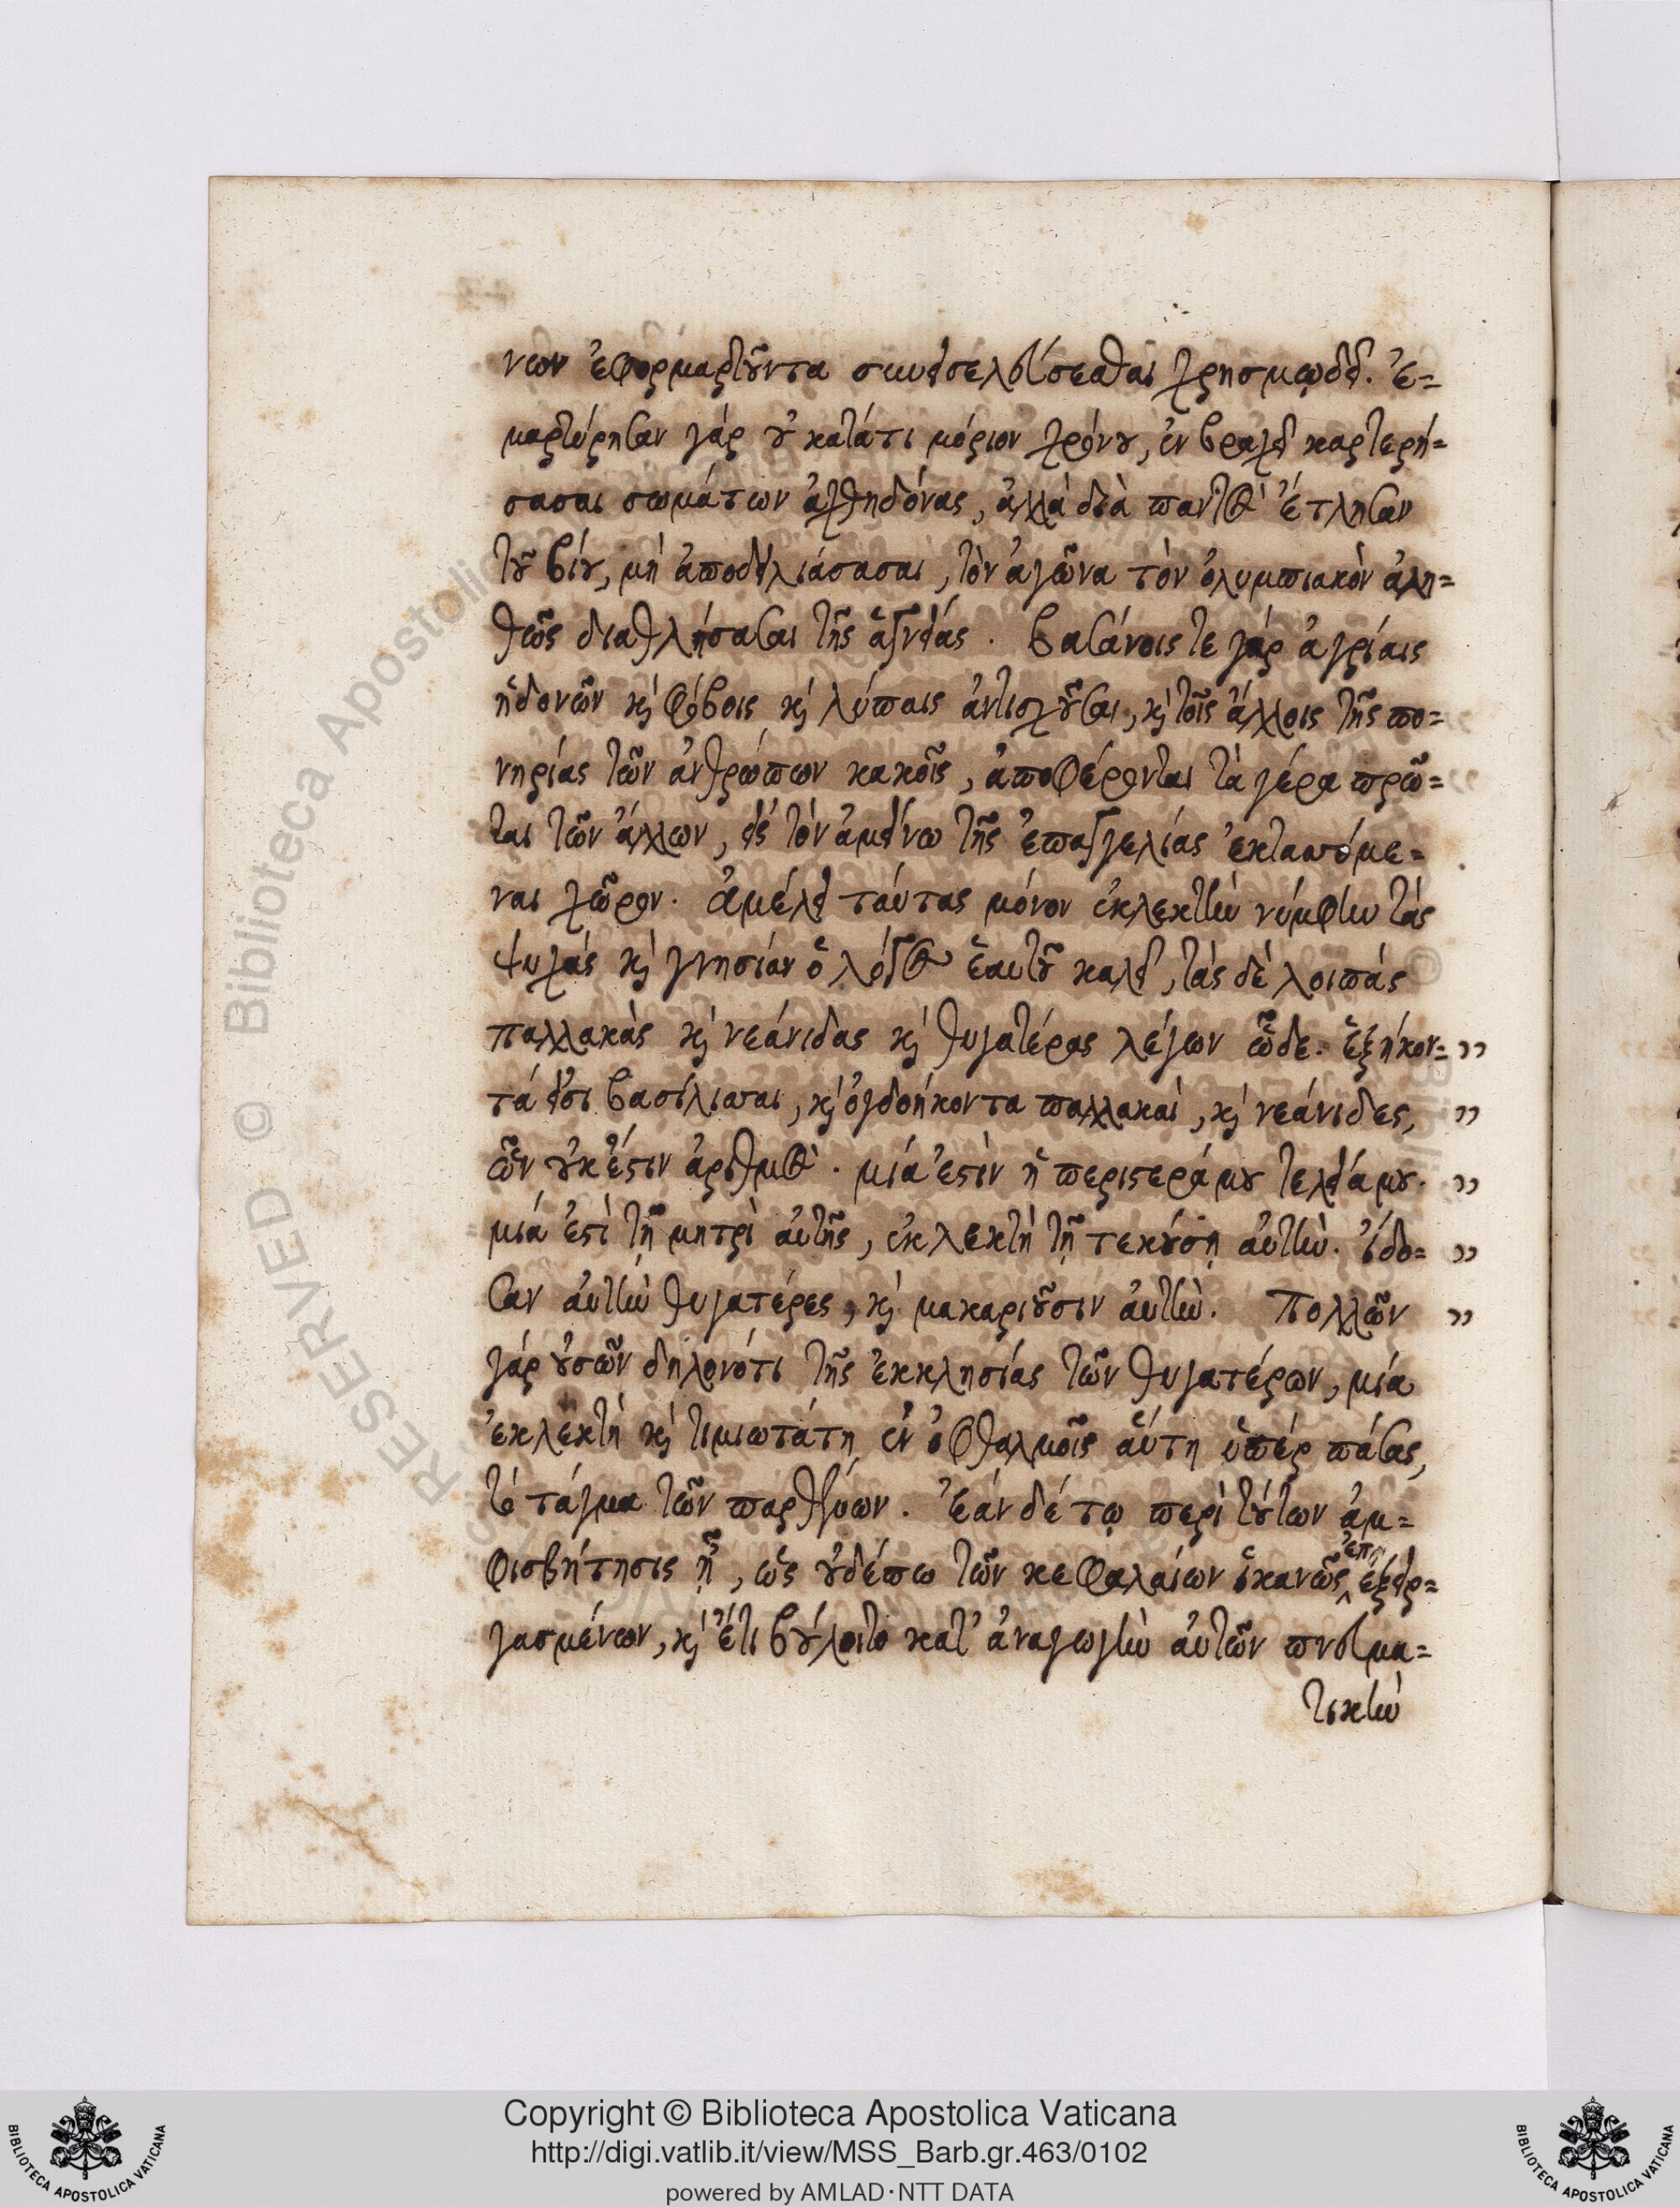 νων ἐφορμαστοῦντα συνεισελεύσεσθαι χρησμῳδεῖ. ἐ=
μαρτύρησαν γάρ οὐ κατάτι μόριον χρόνου, ἐν βραχεῖ καρτερή=
σασαι σωμάτων ἀλγηδόνας, ἀλλὰ διὰ παντὸς ἔτλησαν
τοῦ βίου, μὴ ἀποδειλιάσασαι, τὸν ἀγῶνα τὸν ὀλυμπιακὸν ἀλη=
θῶς διαθλήσασαι τῆς ἁγνείας. βασάνοις τε γάρ ἀγρίαις
ἡδονῶν καὶ φόβοις καὶ λύπαις ἀντισχοῦσαι, καὶ τοῖς ἄλλοις τῆς πο=
νηρίας τῶν ἀνθρώπων κακοῖς, ἀποφέρονται τὰ γέρα πρῶ=
ται τῶν ἄλλων, εἰς τὸν ἀμείνω τῆς ἐπαγγελίας ἐκτασσόμε=
ναι χῶρον. ἀμέλει ταύτας μόνον ἐκλεκτὴν νύμφην τάς
ψυχάς καὶ γνησίαν ὁ λόγος ἑαυτοῦ καλεῖ, τὰς δὲ λοιπάς
παλλακὰς καὶ νεάνιδας καὶ θυγατέρας λέγων ὧδε. ἑξήκον= ”
τά εἰσι βασίλισσαι, καὶ ὀγδοήκοντα παλλακαὶ, καὶ νεάνιδες, ”
ὧν οὐκ ἔστιν ἀριθμὸς. μία ἐστὶν ἡ περιστερά μου τελεία μου. ”
μιά ἐστὶ τῇ μητρὶ αὐτῆς, ἐκλεκτὴ τῇ τεκούσῃ αὐτὴν. ἴδο= ”
σαν αὐτὴν θυγατέρες, καὶ μακαριοῦσιν αὐτὴν. Πολλῶν ”
γάρ οὐσῶν δηλονότι τῆς ἐκκλησίας τῶν θυγατέρων, μία
ἐκλεκτὴ καὶ τιμιωτάτη ἐν ὀφθαλμοῖς αὕτη ὑπέρ πάσας,
τὸ τάγμα τῶν παρθένων. Ἐάν δέ τῳ περὶ τούτων ἀμ=
φισβήτησις ᾖ, ὡς οὐδέπω τῶν κεφαλαίων ἱκανῶς ἐπεξειρ=
γασμένων, καὶ ἔτι βούλοιτο κατ᾽ ἀναγωγὴν αὐτῶν πνευμα=
τικὴν
Copyright © Biblioteca Apostolica Vaticana
http://digi.vatlib.it/view/MSS_Barb.gr.463/0102
powered by AMLAD·NTT DATA